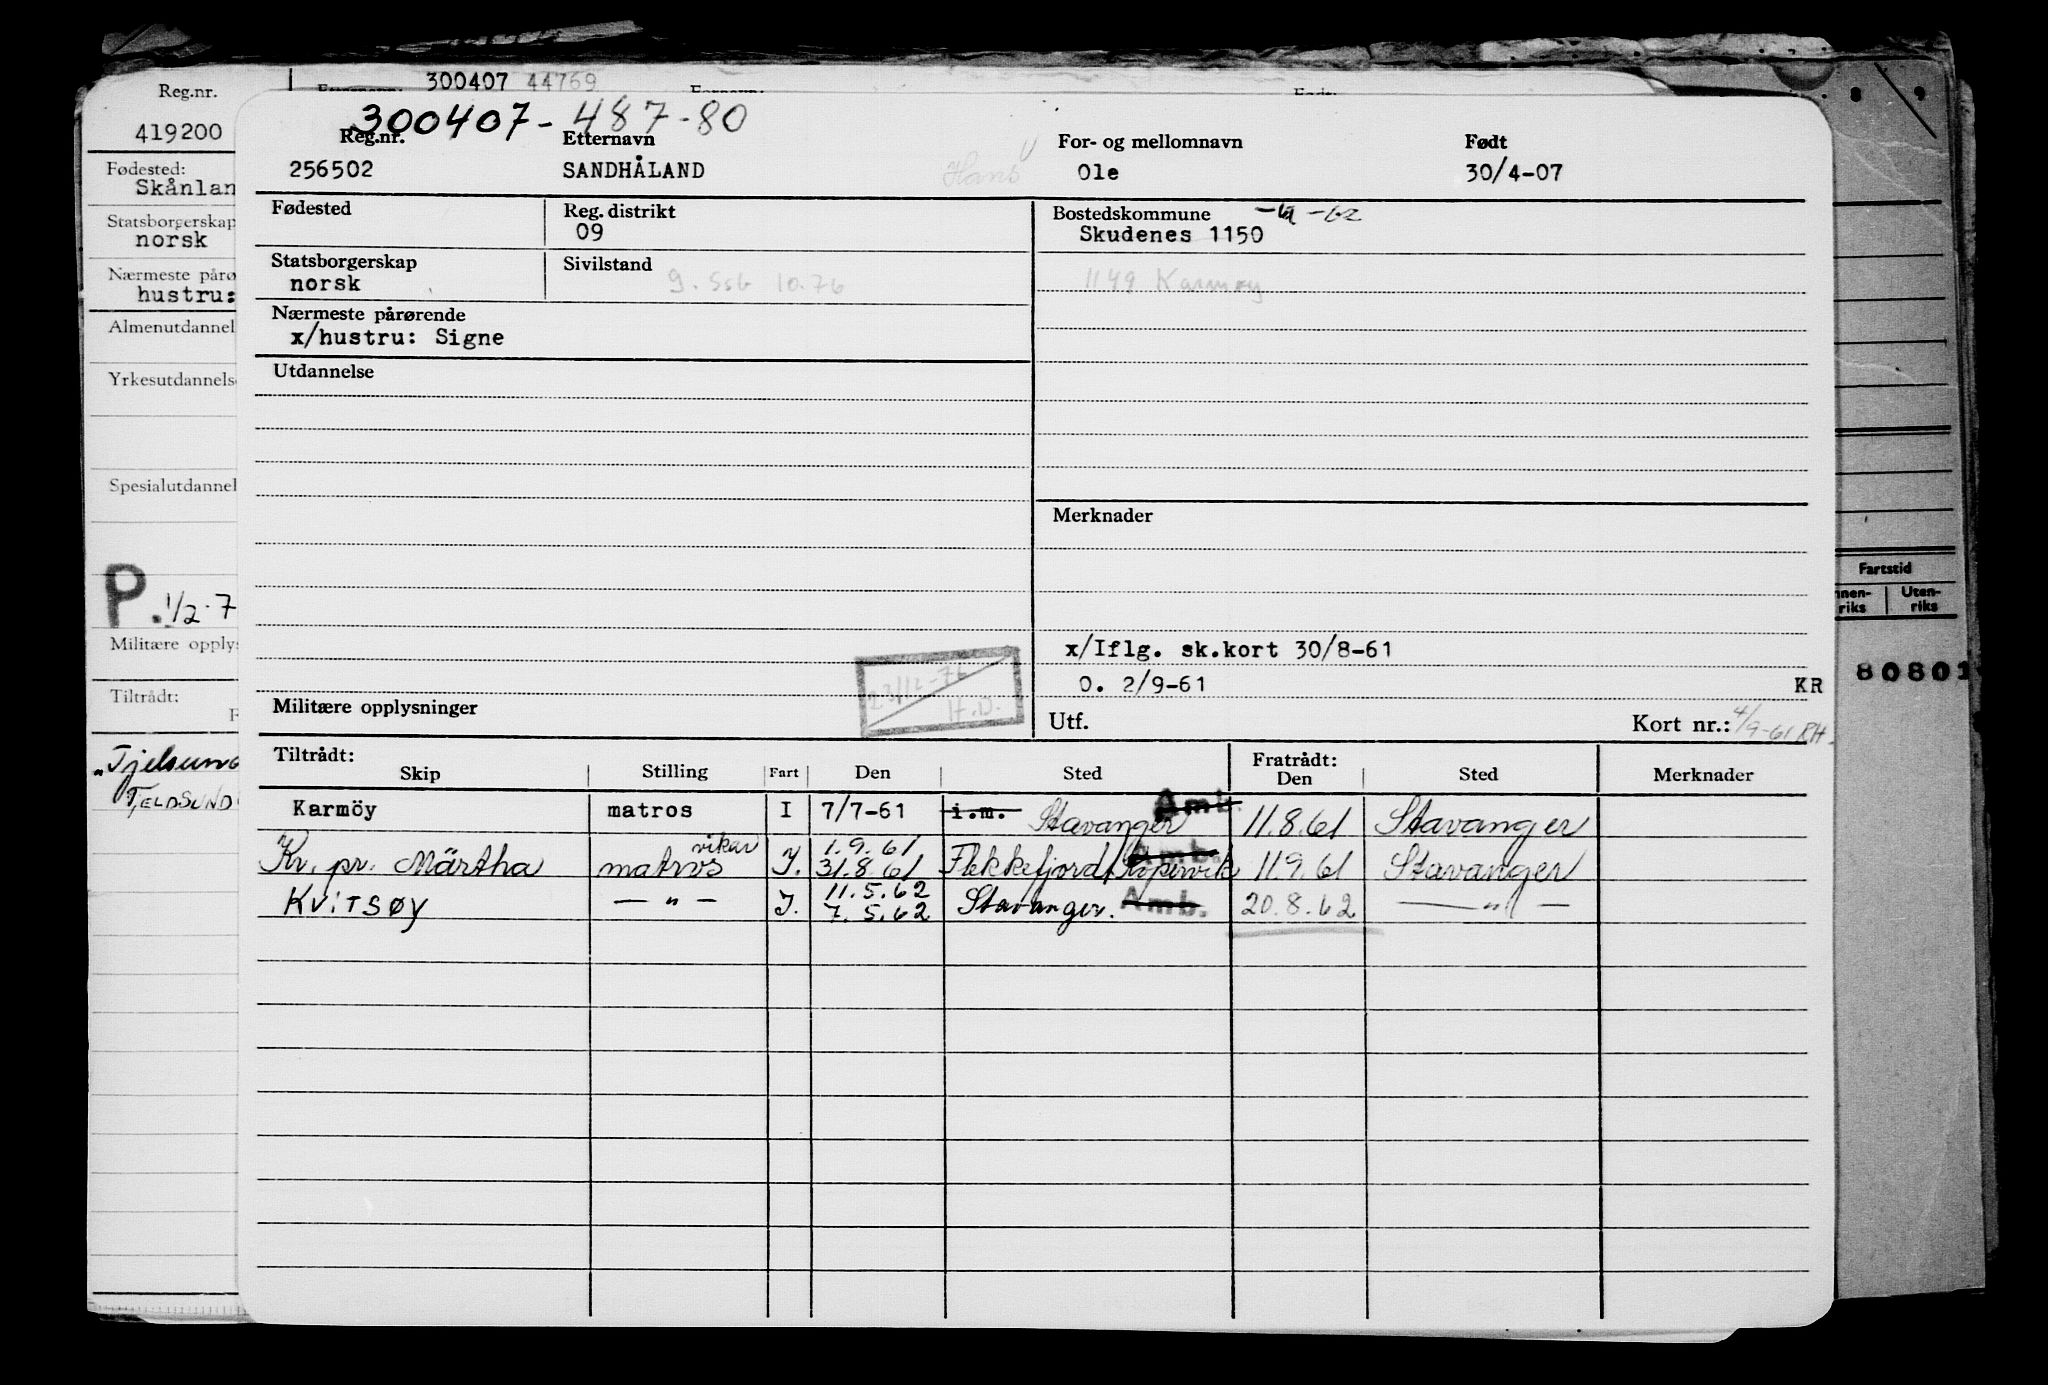 300407 44769
8 9
Reg.nr.
419200
Fødested:
Skånlan
Statsborgerskap
norsk
Nærmeste påro
hustru:
Almenutdannel
Yrkesutdannelse
Spesialutdannel
P. 1/2-7
Militære opplys
Tiltrådt:
"Tjelsund
TJELDSUND
300407-487-80
Reg.nr. Etternavn For- og mellomnavn Født
256502 SANDHÅLAND Hans Ole 30/4-07
Fødested Reg. distrikt Bostedskommune
09 Skudenes 1150
Statsborgerskap Sivilstand
norsk 9. Ssb 10.76 1149 Karmøy
Nærmeste pårørende
x/hustru: Signe
Utdannelse
Merknader
x/Iflg. sk.kort 30/8-61
O. 2/9-61 KR
23/12-76
H.D.
Militære opplysninger Utf. Kort nr.: 4/9-61 RH.
Tiltrådt: Fratrådt:
Skip Stilling Fart Den Sted Den Sted Merknader
Karmöy matros I 7/7-61 i.m. Stavanger Amb. 11.8.61 Stavanger
Kr. pr. Märtha matros vikar I. 1.9.61 31.8.61 Flekkefjord/Kopervik Amb. 11.9.61 Stavanger
KVITSØY — " — I. 11.5.62 7.5.62 Stavanger. Amb. 20.8.62 — " —
Fartstid
nnen-
riks
Uten-
riks
80801